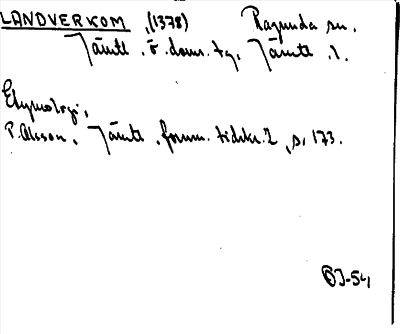 LANDVERKOM, (1378) Ragunda sn.
Jämtl. ö. doms. tg, Jämtl. l.
Etymologi,
P. Olsson, Jämtl. fornm. tidskr. 2, s. 173.
BJ-54